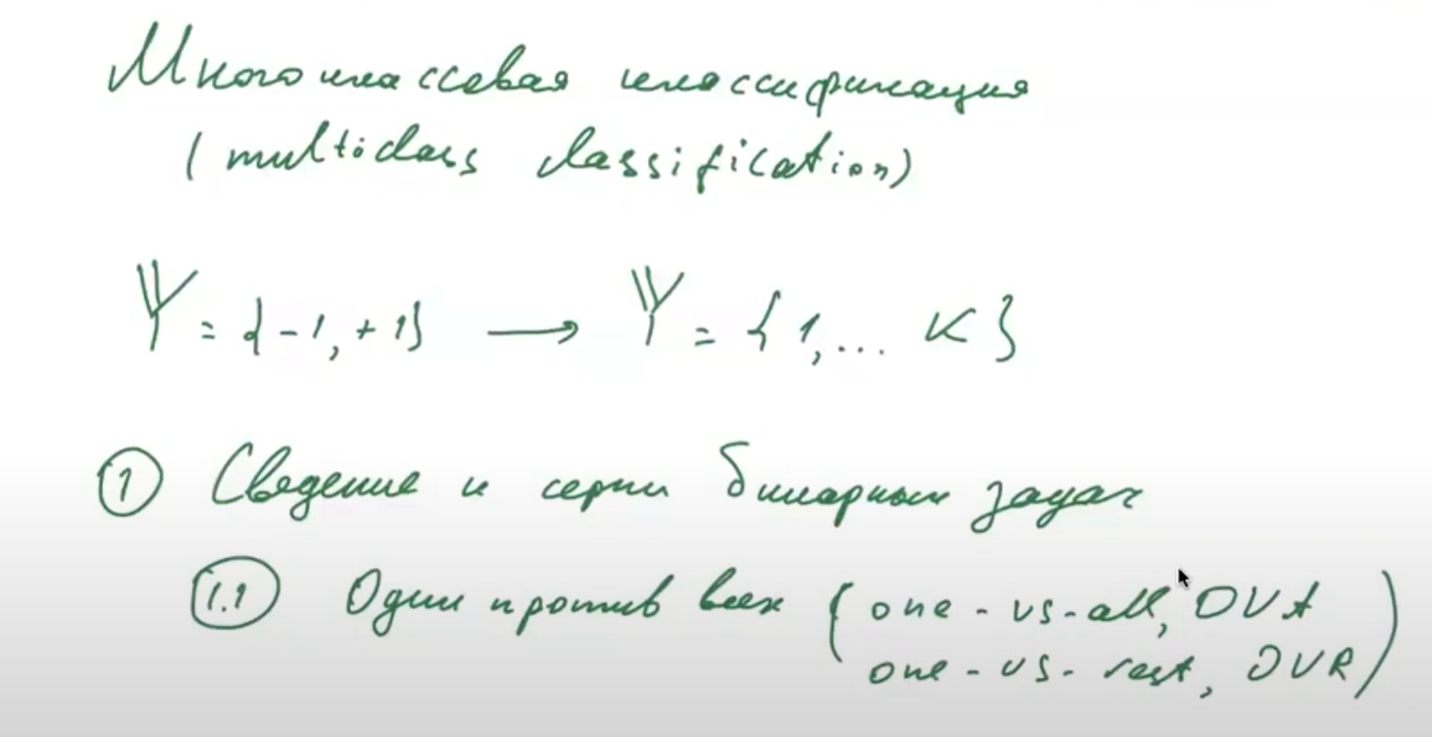 Многоклассовая классификация
(multiclass classification)
𝕐 = {-1, +1} → 𝕐 = {1, ... K}
① Сведение к серии бинарных задач
1.1 Один против всех (one-vs-all, OVA
one-vs-rest, OVR)